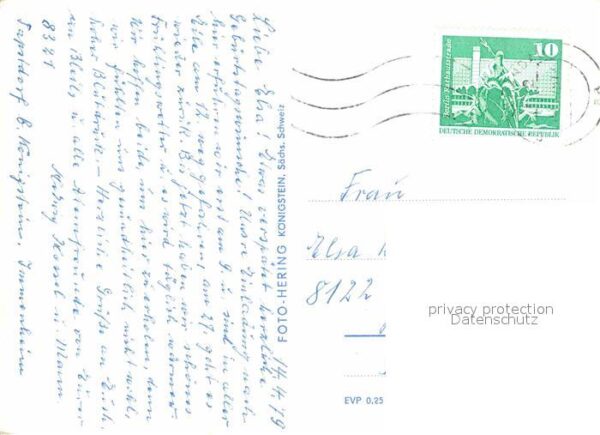 14.4.79
Liebe Elsa! Etwas verspätet herzliche
Geburtstagswünsche! Unsere Einladung nach
hier erfuhren wir erst am 9. u. sind in aller
Eile am 12. weggefahren, am 27. geht es
wieder zurück. Bis jetzt haben wir schönes
Frühlingswetter u. es wird täglich wärmer.
Wir hoffen beide, uns hier zu erholen, denn
wir fühlen uns gesundheitlich nicht wohl,
hoher Blutdruck – Herzliche Grüße an Dich,
an u. alle von Eurer
u. Mann
8321
b. Königstein,
FOTO-HERING KÖNIGSTEIN, Sächs. Schweiz
10
Berlin, Rathausstraße
DEUTSCHE DEMOKRATISCHE REPUBLIK
Frau
Elsa
8122
privacy protection
Datenschutz
EVP 0,25